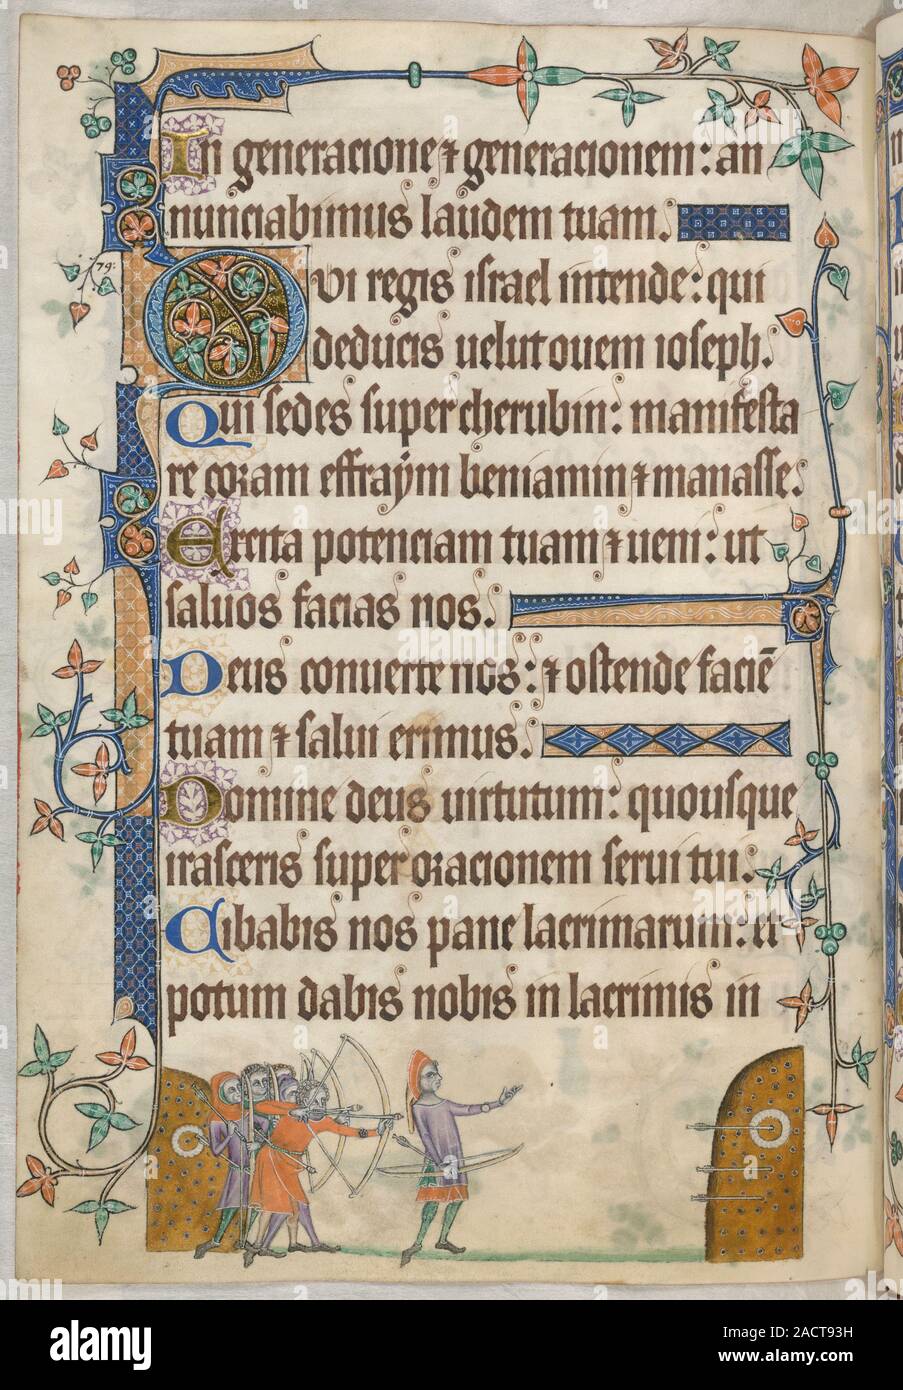 In generacione ⁊ generacionem: an
nunciabimus laudem tuam.
79.
QVI regis israel intende: qui
deducis uelut ouem ioseph.
Qui sedes super cherubin: manifesta
re coram effraym beniamin ⁊ manasse.
Excita potenciam tuam ⁊ ueni: ut
saluos facias nos.
Deus conuerte nos: ⁊ ostende faciē
tuam ⁊ salui erimus.
Domine deus uirtutum: quousque
irasceris super oracionem serui tui.
Cibabis nos pane lacrimarum: et
potum dabis nobis in lacrimis in
alamy
Image ID: 2ACT93H
www.alamy.com